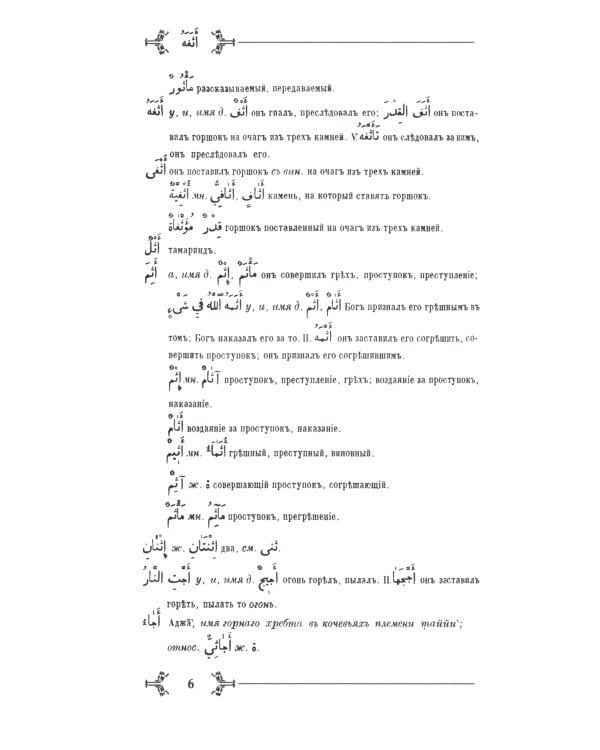 أَثَفَهُ
مَأْثُورٌ разсказываемый, передаваемый.
أَثَفَهُ у, и, имя д. أَثْفٌ онъ гналъ, преслѣдовалъ его; أَثَفَ الْقِدْرَ онъ поста-
вилъ горшокъ на очагъ изъ трехъ камней. V. تَأَثَّفَهُ онъ слѣдовалъ за нимъ,
онъ преслѣдовалъ его.
أَثْفَى онъ поставилъ горшокъ съ вин. на очагъ изъ трехъ камней.
أُثْفِيَّةٌ мн. أَثَافِيُّ, أَثَافٍ камень, на который ставятъ горшокъ.
قِدْرٌ مُؤَثْفَاةٌ горшокъ поставленный на очагъ изъ трехъ камней.
أَثْلٌ тамариндъ.
أَثِمَ а, имя д. إِثْمٌ, مَأْثَمٌ онъ совершилъ грѣхъ, проступокъ, преступленіе;
أَثَمَهُ اللّٰهُ فِي شَيْءٍ у, и, имя д. أَثْمٌ, أَثَامٌ Богъ призналъ его грѣшнымъ въ
томъ; Богъ наказалъ его за то. II. أَثَّمَهُ онъ заставилъ его согрѣшить, со-
вершить проступокъ; онъ призналъ его согрѣшившимъ.
إِثْمٌ мн. آثَامٌ проступокъ, преступленіе, грѣхъ; воздаяніе за проступокъ,
наказаніе.
أَثَامٌ воздаяніе за проступокъ, наказаніе.
أَثِيمٌ мн. أُثَمَاءُ грѣшный, преступный, виновный.
آثِمٌ ж. ة совершающій проступокъ, согрѣшающій.
مَأْثَمٌ мн. مَآثِمُ проступокъ, прегрѣшеніе.
إِثْنَانِ ж. إِثْنَتَانِ два, см. ثنى.
أَجَّتِ النَّارُ у, и, имя д. أَجِيجٌ огонь горѣлъ, пылалъ. II. أَجَّجَهَا онъ заставилъ
горѣть, пылать то огонь.
أَجَاءُ Аджа̄', имя горнаго хребта въ кочевьяхъ племени таййи';
относ. أَجَائِيٌّ ж. ة.
6